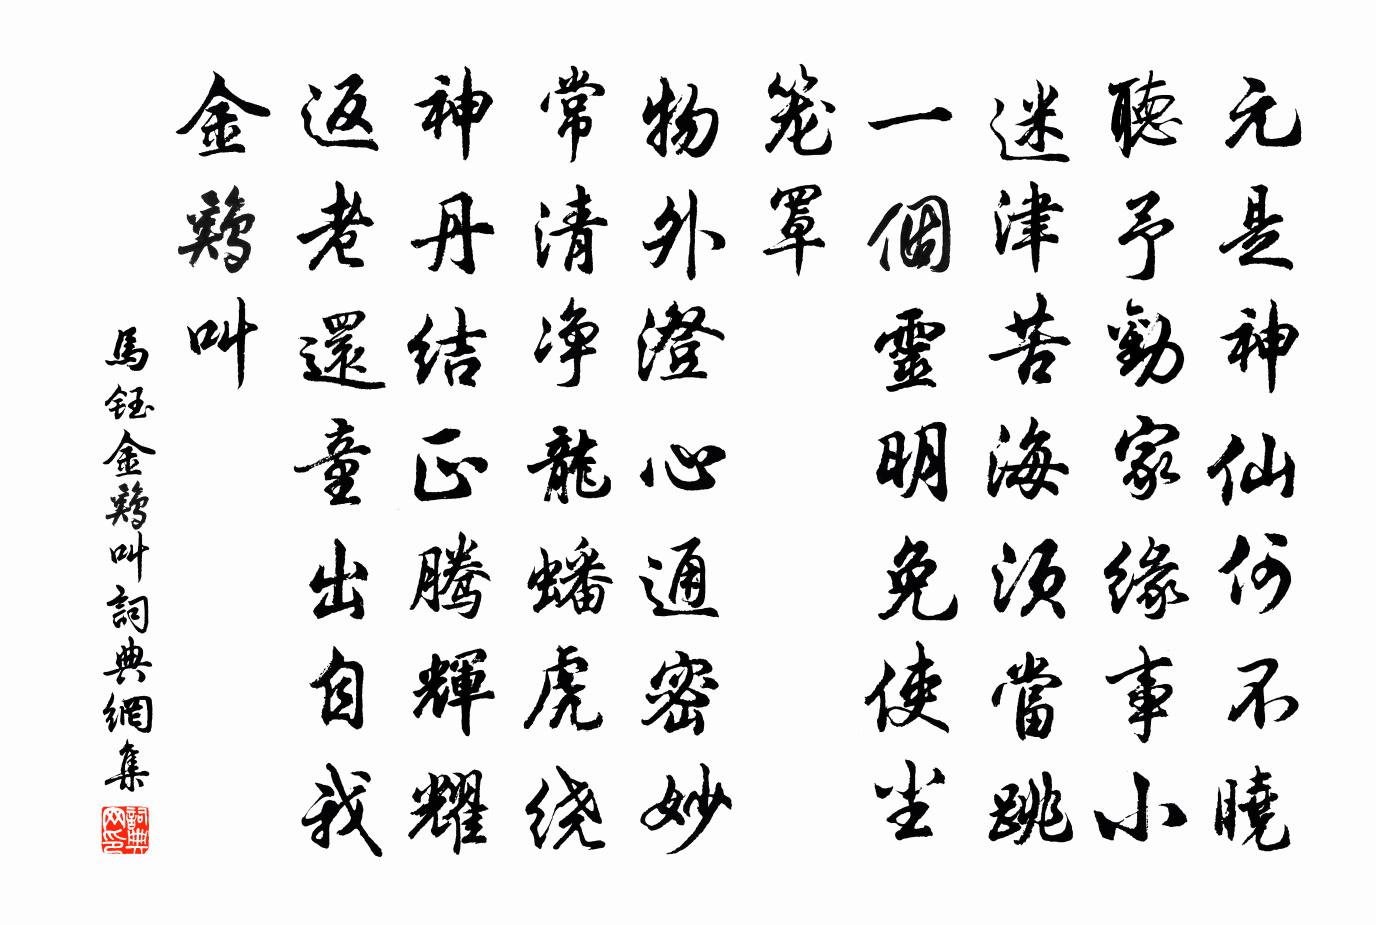 元是神仙何不曉
聽予勸家緣事小
迷津苦海須當跳
一個靈明免使坐
笼罩
物外澄心通密妙
常清净龍蟠虎绕
神丹结正騰輝耀
返老還童出自我
金鷄叫
馬鈺金鷄叫詞典網集
詞典网印